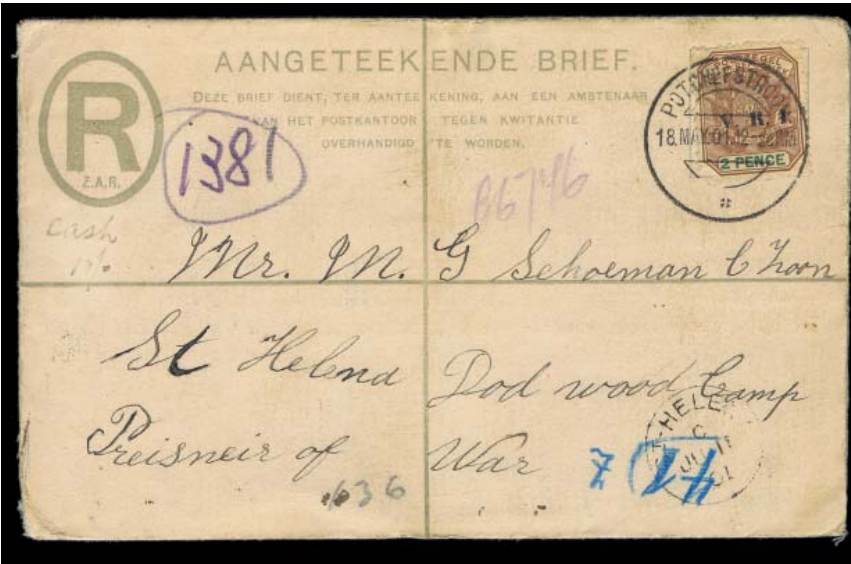 AANGETEEKENDE BRIEF.
DEZE BRIEF DIENT, TER AANTEEKENING, AAN EEN AMBTENAAR
VAN HET POSTKANTOOR TEGEN KWITANTIE
OVERHANDIGD TE WORDEN.
R
Z.A.R.
1381
POTCHEFSTROOM
V.R.I.
18.MAY.01.12
2 PENCE
cash
Mr. M. G Schoeman C Zoon
St Helena Dod wood Camp
Preisneir of War
HELE
C
JU 11
01
7
41
636